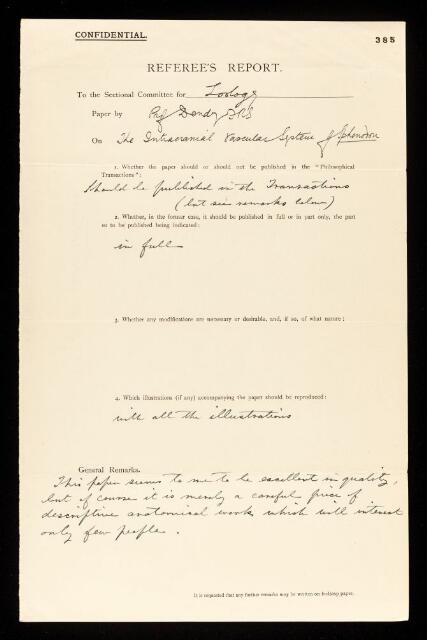 CONFIDENTIAL.
385
REFEREE'S REPORT.
To the Sectional Committee for Zoology
Paper by Prof Dendy FRS
On The Intracranial Vascular System of Sphenodon
1. Whether the paper should or should not be published in the "Philosophical
Transactions":
Should be published in the Transactions
(but see remarks below)
2. Whether, in the former case, it should be published in full or in part only, the part
so to be published being indicated:
in full
3. Whether any modifications are necessary or desirable, and, if so, of what nature:
4. Which illustrations (if any) accompanying the paper should be reproduced:
with all the illustrations
General Remarks.
This paper seems to me to be excellent in quality,
but of course it is merely a careful piece of
descriptive anatomical work which will interest
only few people.
It is requested that any further remarks may be written on foolscap paper.